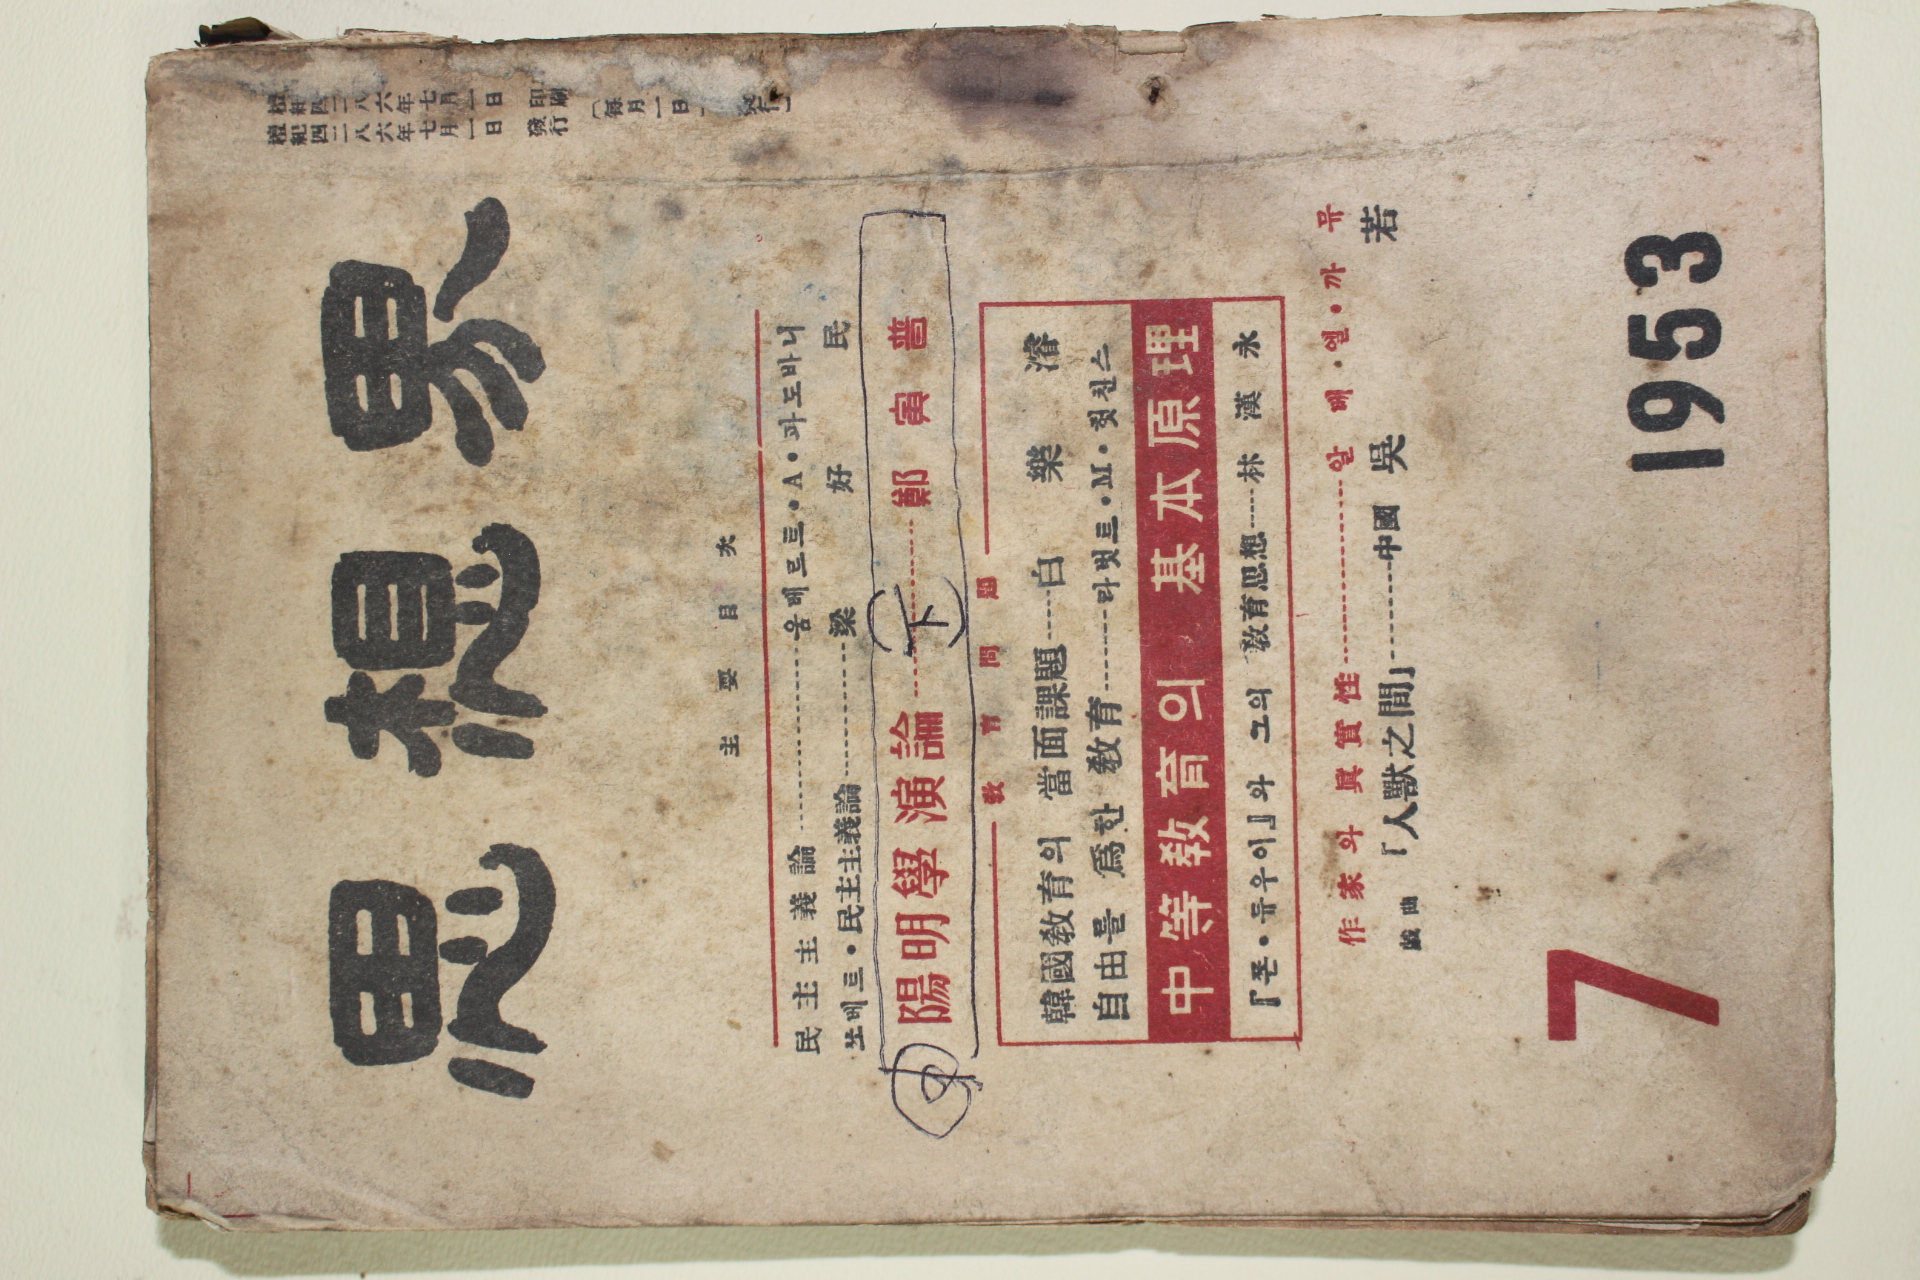 檀紀四二八六年七月一日 印刷
檀紀四二八六年七月一日 發行
(每月一日
思想界
主要目次
民主主義論……움베르트•A•파도바니
쏘베트•民主主義論……梁好民
陽明學演論……鄭寅普
(下)
敎育問題
韓國敎育의 當面課題……白樂濬
自由를 爲한 敎育……라벗트•M•헛친스
中等敎育의 基本原理
『쫀•듀우이』와 그의 敎育思想……林漢永
作家와 眞實性……알베•엘•까뮤
戱曲 「人獸之間」……中國 吳若
7
1953